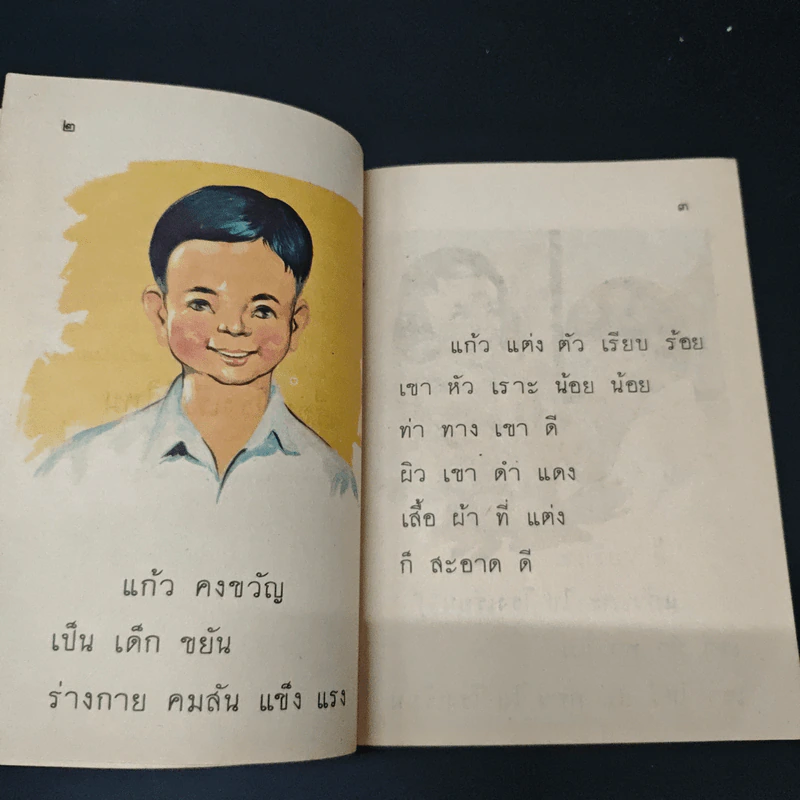 ๒
แก้ว คงขวัญ
เป็น เด็ก ขยัน
ร่างกาย คมสัน แข็ง แรง
๓
แก้ว แต่ง ตัว เรียบ ร้อย
เขา หัว เราะ น้อย น้อย
ท่า ทาง เขา ดี
ผิว เขา ดำ แดง
เสื้อ ผ้า ที่ แต่ง
ก็ สะอาด ดี